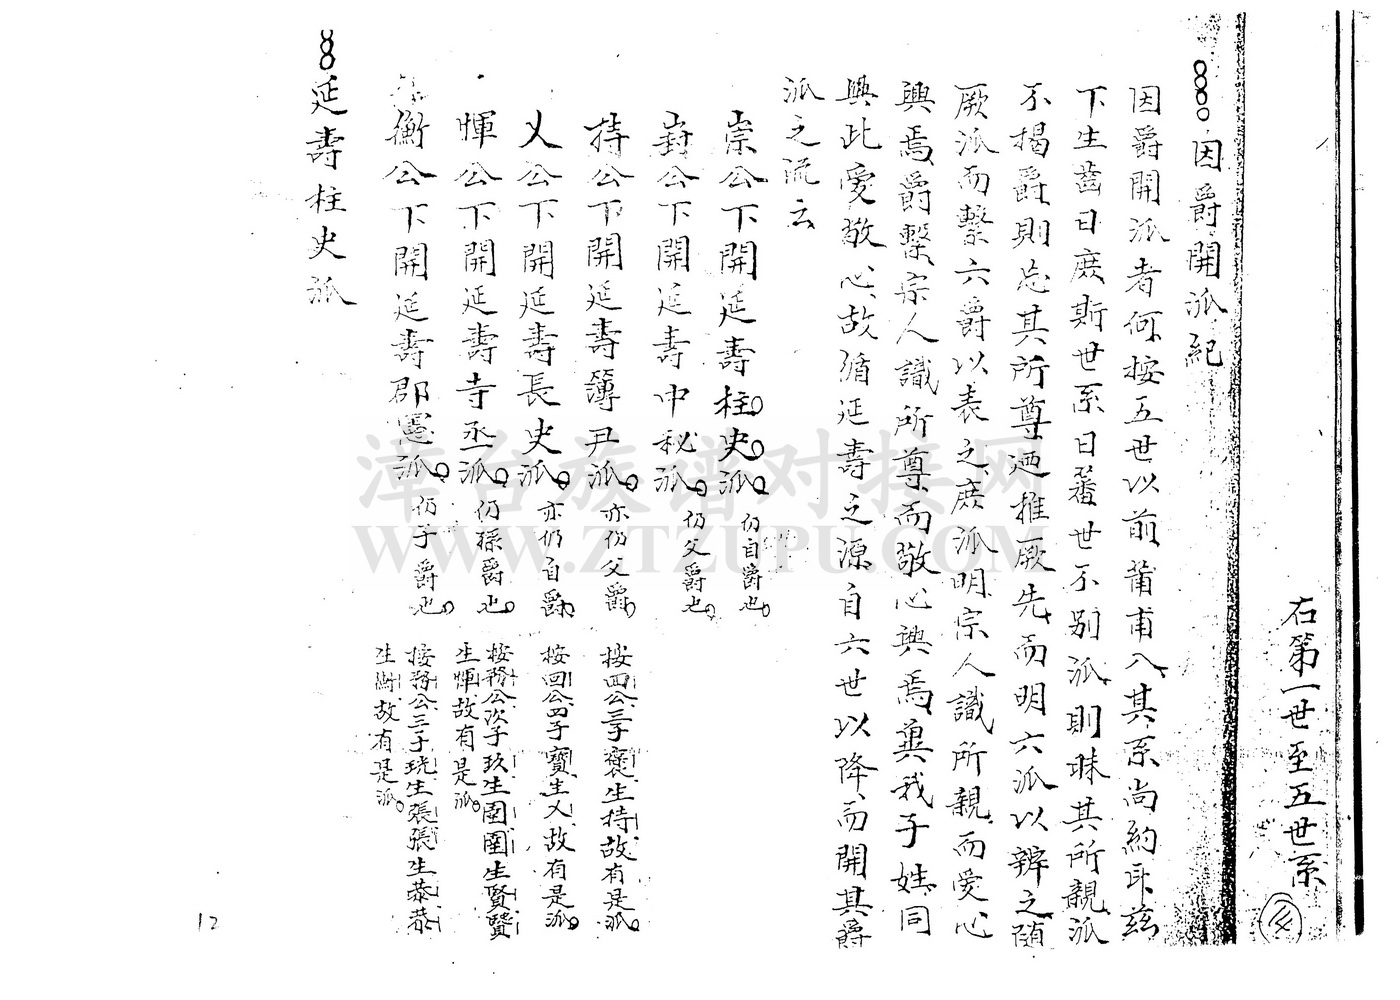 右第一世至五世系
因爵開派紀
因爵開派者何按五世以前莆甫入其系尚約耳茲
下生齒日庶斯世系日蕃世不别派則昧其所親派
不揭爵則忘其所尊迺推厥先而明六派以辨之随
厥派而繫六爵以表之庶派明宗人識所親而愛心
興焉爵繫宗人識所尊而敬心興焉兾我子姓同
興此愛敬心故循延壽之源自六世以降而開其爵
派之流云
崇公下開延壽柱史派 仍自爵也
葑公下開延壽中秘派 仍父爵也
持公下開延壽簿尹派 亦仍父爵 按四公三子襃生持故有是派
乂公下開延壽長史派 亦仍自爵 按回公四子寶生乂故有是派
惲公下開延壽寺丞派 仍孫爵也 按務公次子玖生圍圍生賢賢
生惲故有是派
衡公下開延壽郡憲派 仍子爵也 按務公三子珖生張張生恭恭
生衡故有是派
延壽柱史派
12
漳台族谱对接网
WWW.ZTZUPU.COM